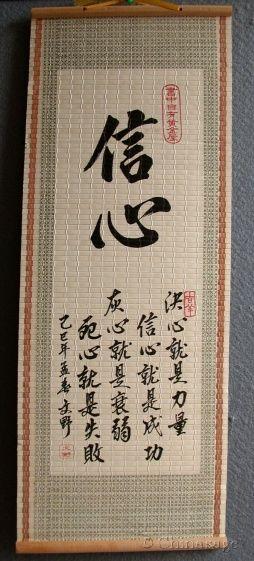 書中自有黄金屋
信心
決心就是力量
信心就是成功
灰心就是衰弱
死心就是失敗
乙巳年孟春文野
© Chinasage